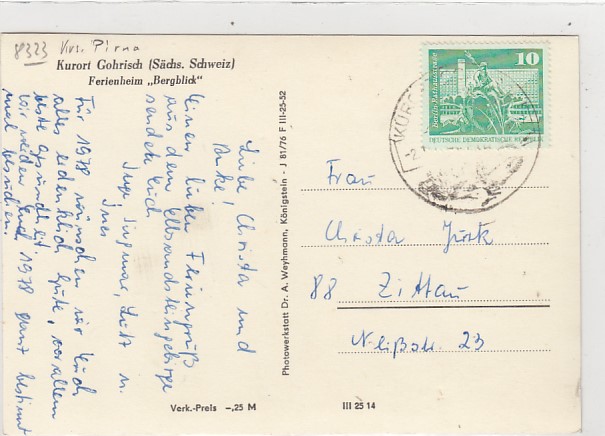 8323 Krs. Pirna
Kurort Gohrisch (Sächs. Schweiz)
Ferienheim „Bergblick“
Liebe Christa und
Anke!
Einen lieben Feriengruß
aus dem Elbsandsteingebirge
sendet Euch
Inge, Ingmar, Lutz u.
Ines
Für 1978 wünschen wir Euch
alles erdenklich Gute, vor allem
beste Gesundheit.
Wir werden Euch 1978 ganz bestimmt
mal besuchen.
Photowerkstatt Dr. A. Weyhmann, Königstein - J 81/76 F III-25-52
Verk.-Preis -,25 M
III 25 14
10
Berlin, Rathausstraße
DEUTSCHE DEMOKRATISCHE REPUBLIK
KUROR
Frau
Christa
88 Zittau
Neißstr. 23